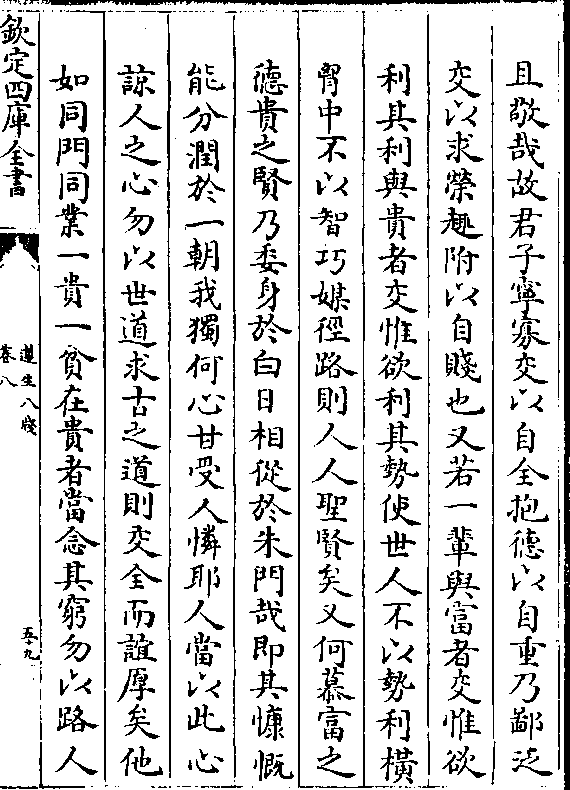 且敬哉故君子寧寡交以自全抱德以自重乃鄙泛
交以求榮趨附以自賤也又若一輩與富者交惟欲
利其利與貴者交惟欲利其勢使世人不以勢利橫
胷中不以智巧媒徑路則人人聖賢矣又何慕富之
德貴之賢乃委身於白日相從於朱門哉即其慷慨
能分潤於一朝我獨何心甘受人憐耶人當以此心
諒人之心勿以世道求古之道則交全而誼厚矣他
如同門同業一貴一貧在貴者當念其窮勿以路人
欽定四庫全書
遵生八牋
卷八
五九